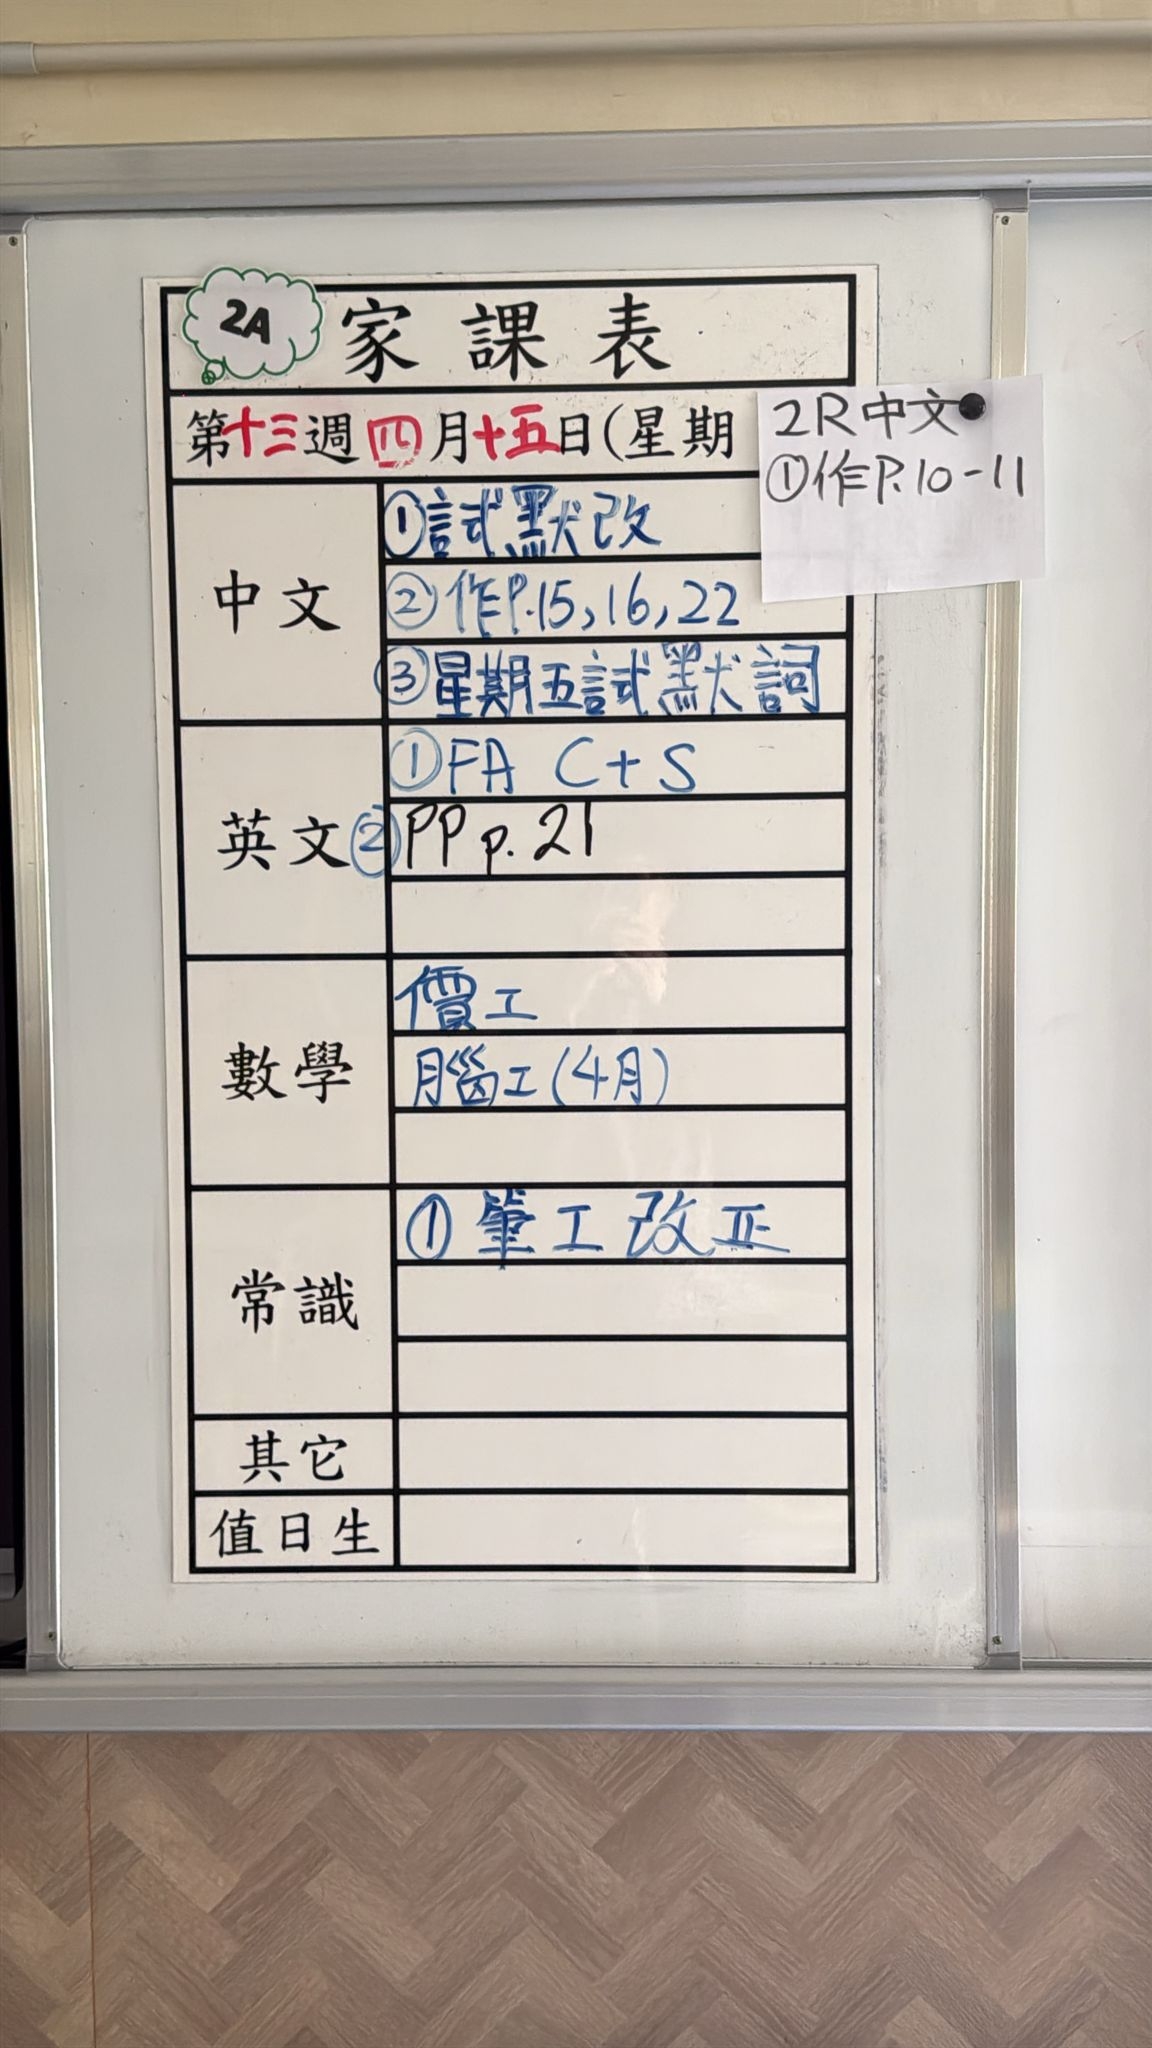 2A
家課表
第十三週四月十五日(星期
2R中文
①作P.10-11
中文
①試默改
②作P.15,16,22
③星期五試默詞
英文
①FA C+S
②PP p.21
數學
價工
腦工(4月)
常識
①筆工改正
其它
值日生